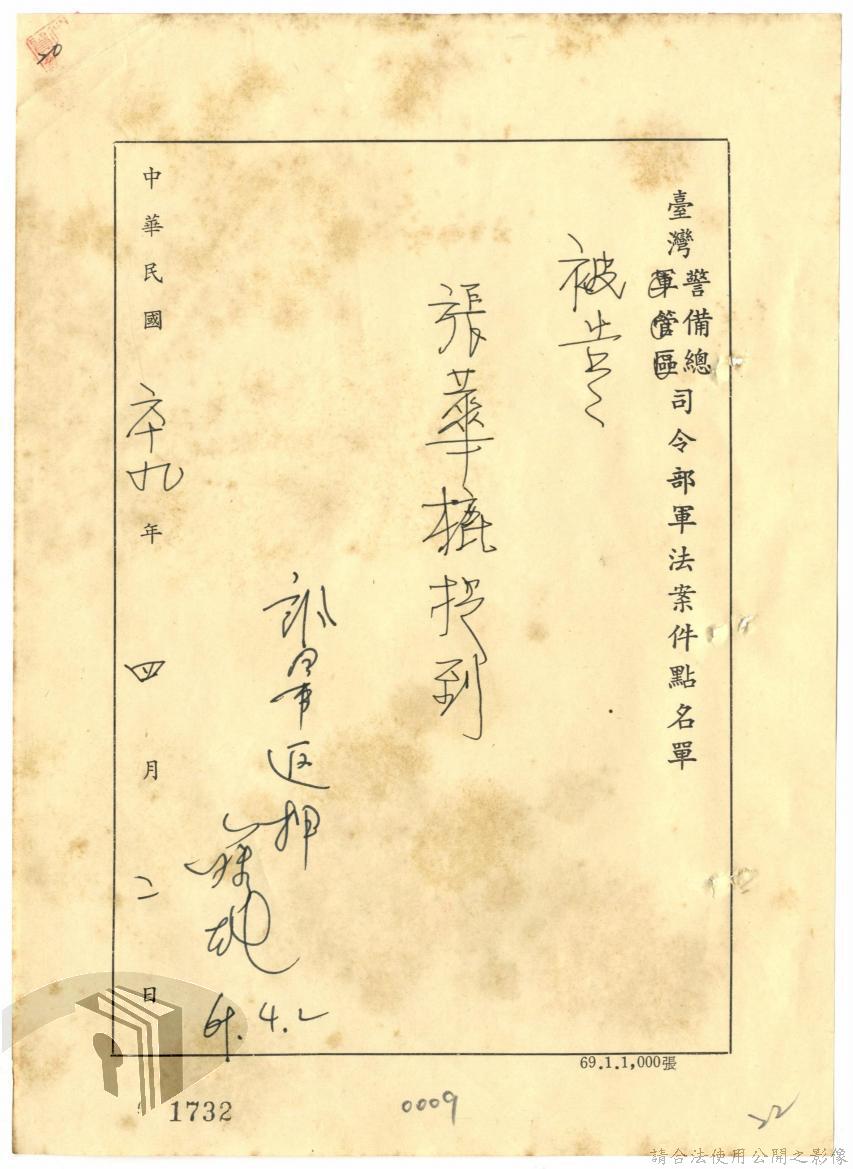 臺灣警備總軍管區司令部軍法案件點名單
被告
張華
到
訊畢返押
69.4.2
中華民國六十九年四月二日
69.1.1,000張
1732
0009
22
20
請合法使用公開之影像